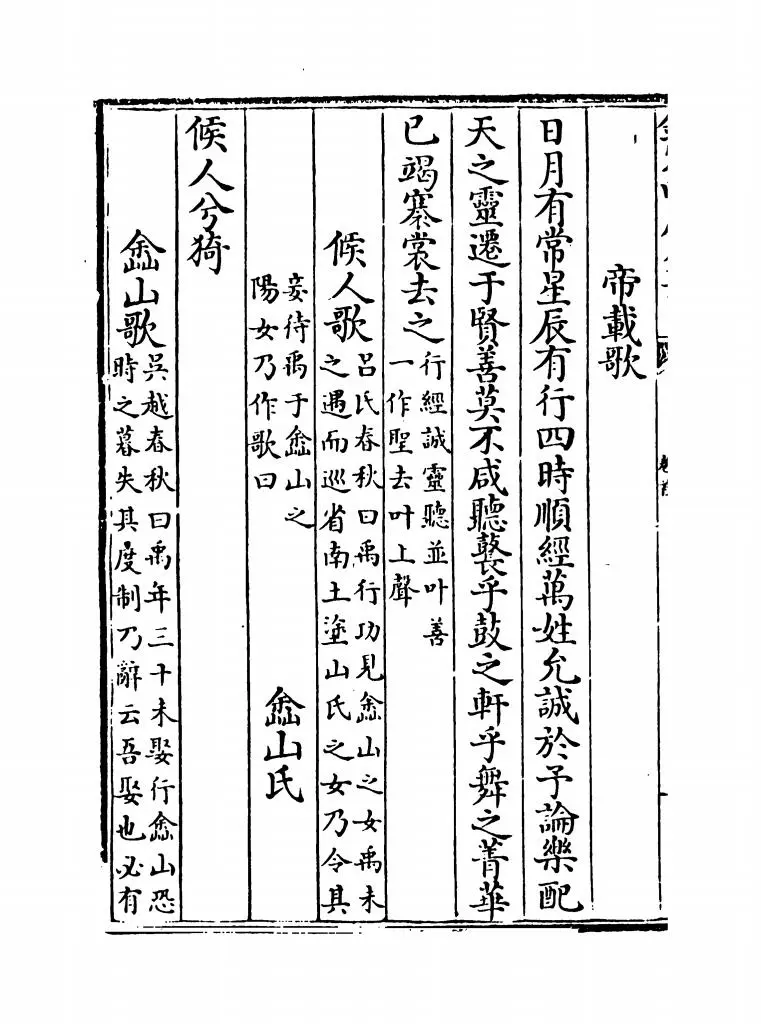 帝載歌
日月有常星辰有行四時順經萬姓允誠於予論樂配
天之靈遷于賢善莫不咸聽鼚乎鼓之軒乎舞之菁華
已竭褰裳去之行經誠靈聽並叶善
一作聖去叶上聲
候人歌呂氏春秋曰禹行功見嵞山之女禹未
之遇而巡省南土塗山氏之女乃令其
妾待禹于嵞山之
陽女乃作歌曰
嵞山氏
候人兮猗
嵞山歌吳越春秋曰禹年三十未娶行嵞山恐
時之暮失其度制乃辭云吾娶也必有